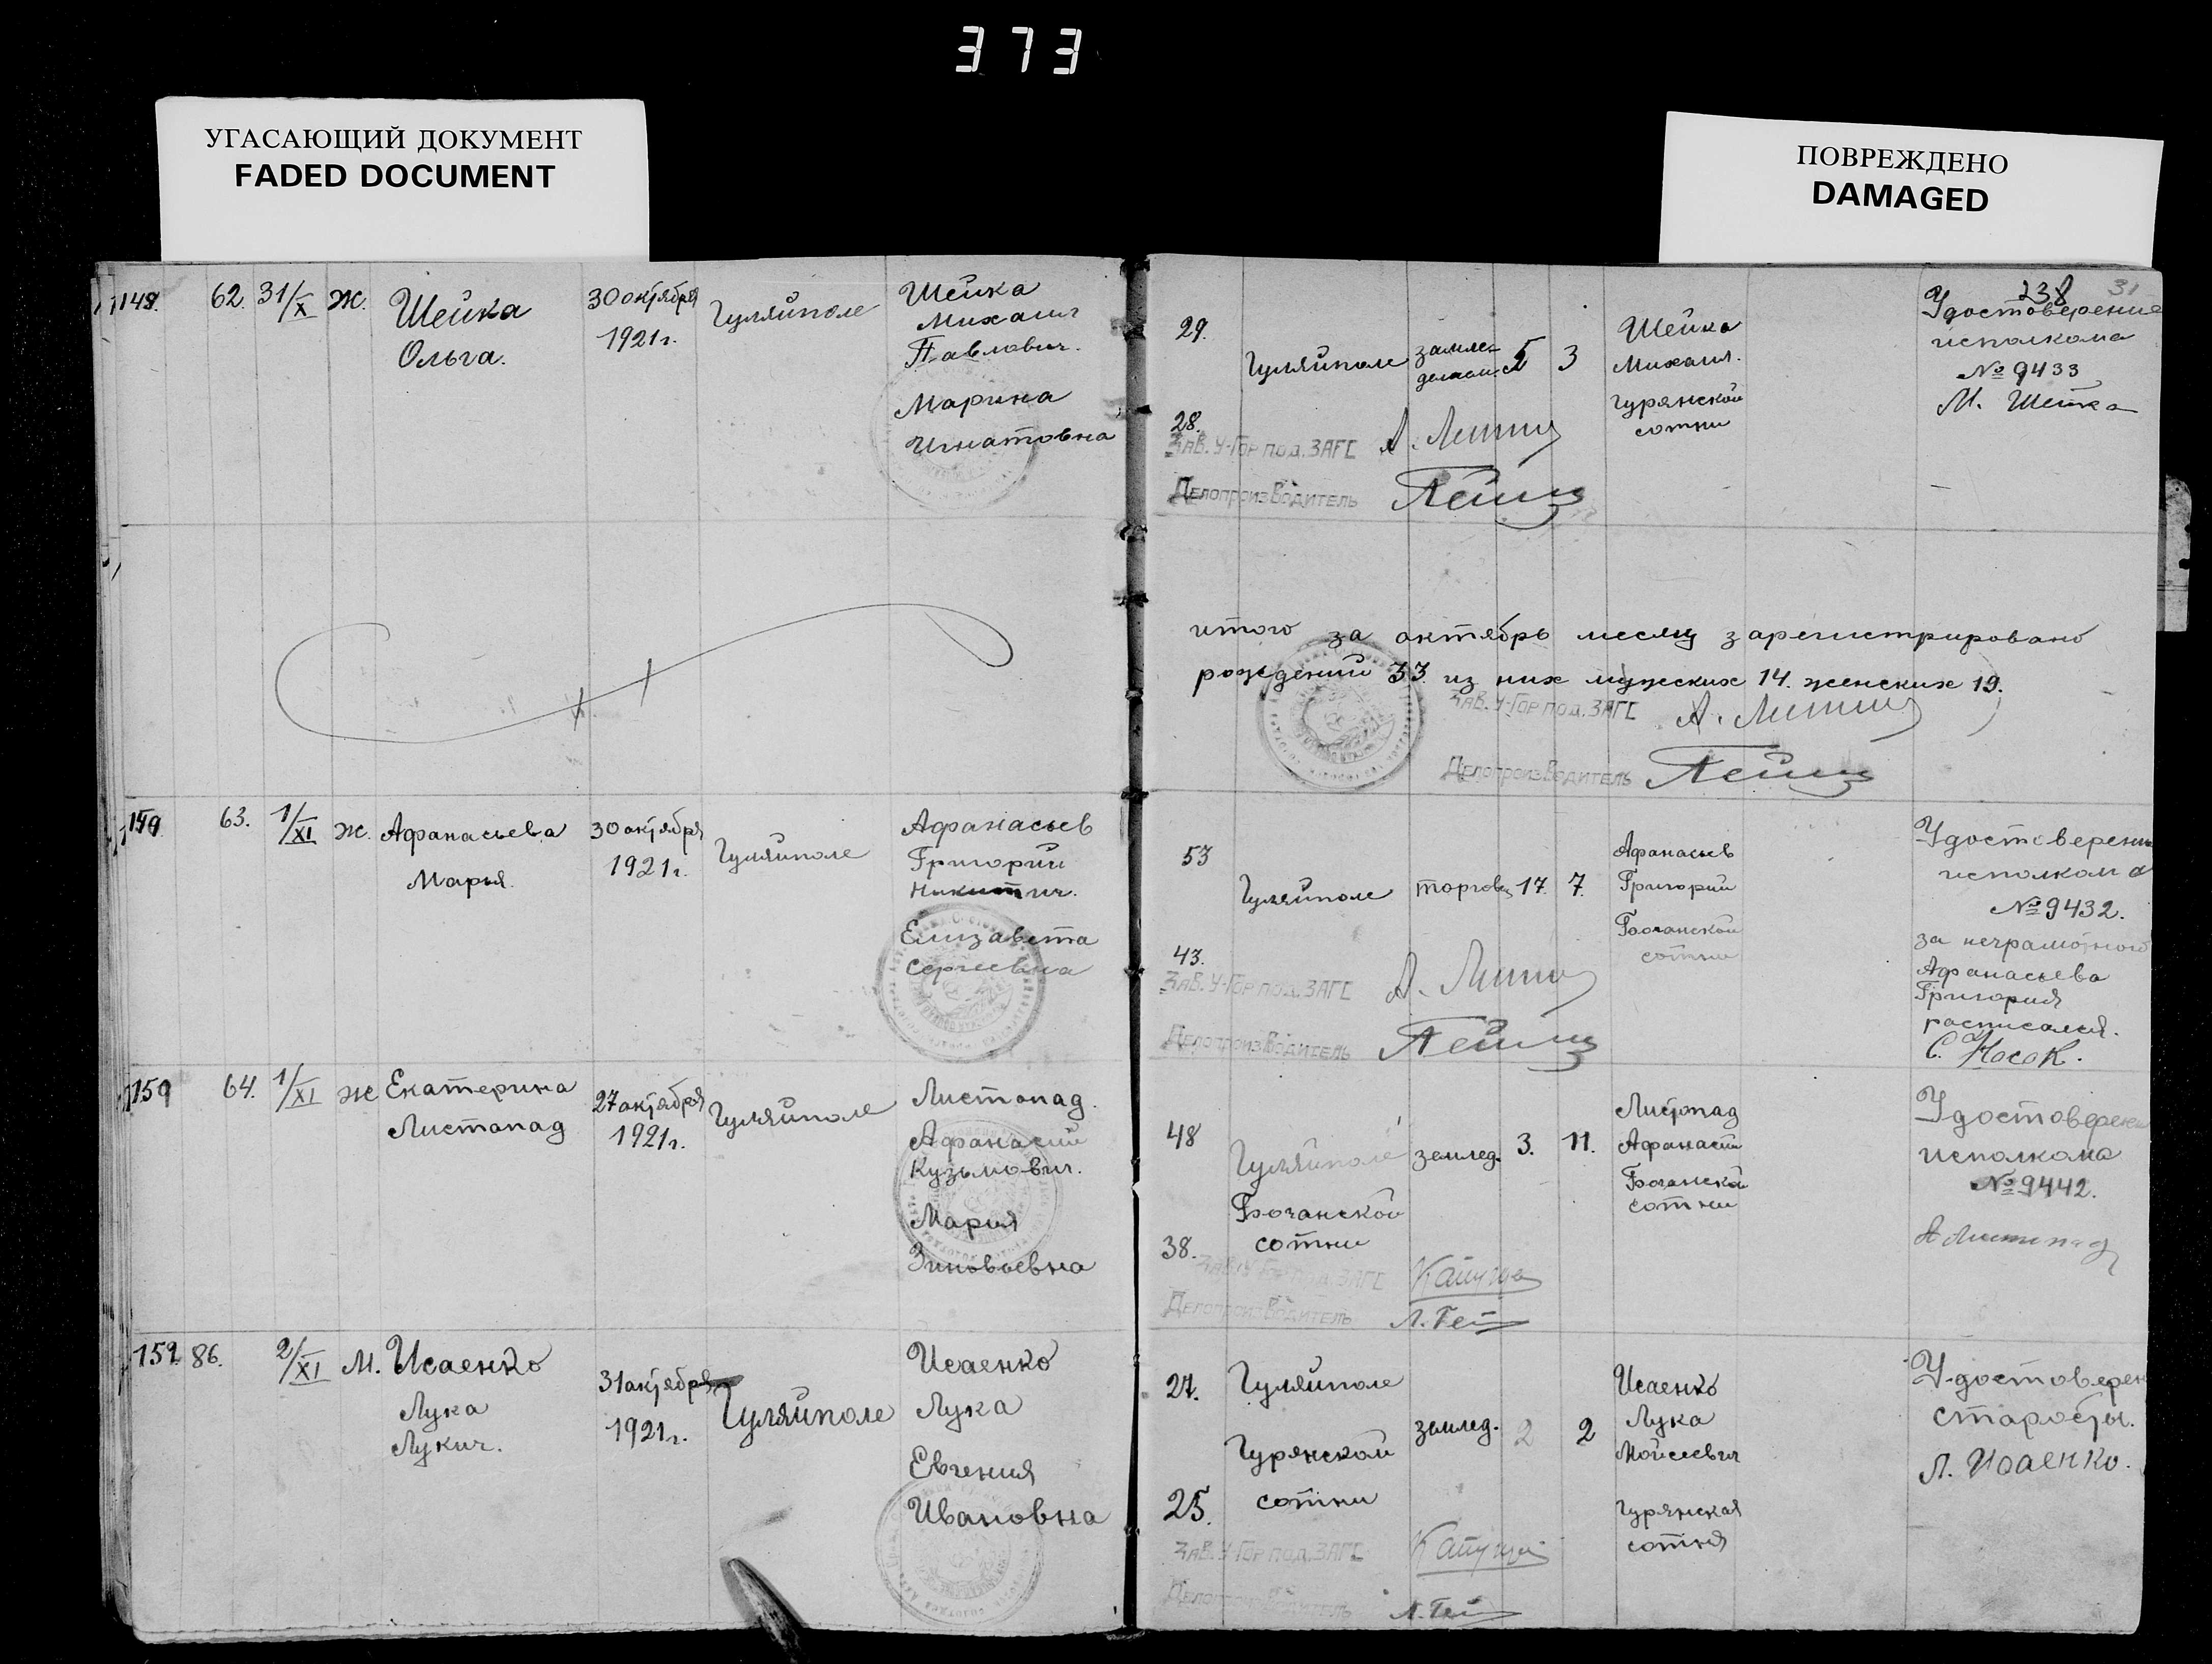 373
УГАСАЮЩИЙ ДОКУМЕНТ
FADED DOCUMENT
ПОВРЕЖДЕНО
DAMAGED
238 31
62. 31/X Ж. Шейка
Ольга.
30 октября
1921 г.
Гуляйполе
Шейка
Михаил
Павлович.
Марина
Игнатовна
29.
28.
Гуляйполе
5 3
Шейка
Михаил.
Гурянской
сотни
Удостоверение
исполкома
№ 9433
М. Шейка
Зав. У-Гор под. ЗАГС
Делопроизводитель
итого за октябрь месяц зарегистрировано
рождений 33 из них мужских 14. женских 19.
Зав. У-Гор под. ЗАГС
Делопроизводитель
63. 1/XI Ж. Афанасьева
Марья.
30 октября
1921 г.
Гуляйполе
Афанасьев
Григорий
Никитич.
Елизавета
Сергеевна
53
43.
Гуляйполе
торговец 17. 7.
Афанасьев
Григорий
Бочанской
сотни
Удостоверение
исполкома
№ 9432.
за неграмотного
Афанасьева
Григория
расписался.
С. Носок.
Зав. У-Гор под. ЗАГС
Делопроизводитель
64. 1/XI Ж Екатерина
Листопад
27 октября
1921 г.
Гуляйполе
Листопад
Афанасий
Кузьмович.
Мария
Зиновьевна
48
38.
Гуляйполе
Бочанской
сотни
землед. 3. 11.
Листопад
Афанасий
Бочанской
сотни
Удостоверени
исполкома
№ 9442.
А Листопад
Зав. У-Гор под. ЗАГС
Делопроизводитель
152 86. 2/XI М. Исаенко
Лука
Лукич.
31 октября
1921 г.
Гуляйполе
Исаенко
Лука
Евгения
Ивановна
27.
25.
Гуляйполе
Гурянской
сотни
землед. 2 2
Исаенко
Лука
Мойсеевич
Гурянская
сотня
Удостоверен
старосты.
Л. Исаенко.
Зав. У-Гор под. ЗАГС
Делопроизводитель